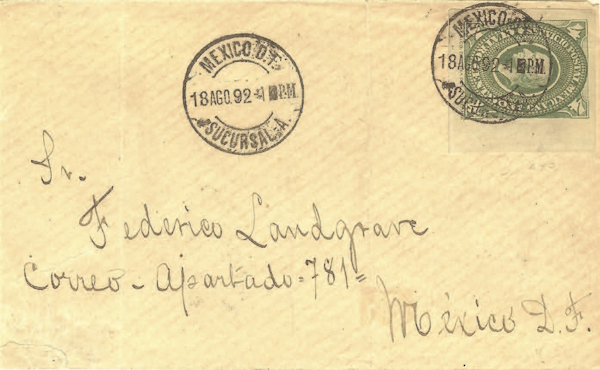 MEXICO D.F.
18 AGO. 92 1 P.M.
SUCURSAL A.
MEXICO D.F.
18 AGO. 92 1 P.M.
Sr.
Federico Landgrave
Correo - Apartado = 781 =
México D. F.